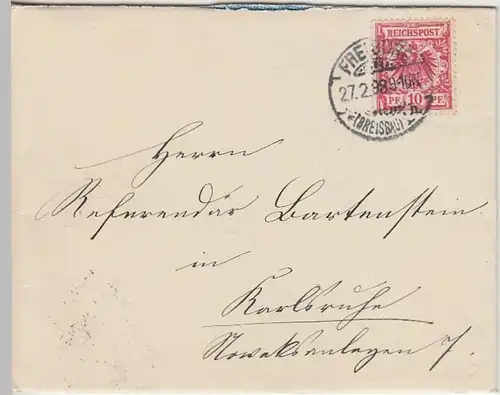 REICHSPOST
PF 10 PF
FREIBURG
27.2.98.9-10N
(BREISGAU)
Herrn
Referendär Bartenstein
in
Karlsruhe
Nowaksanlagen 7.